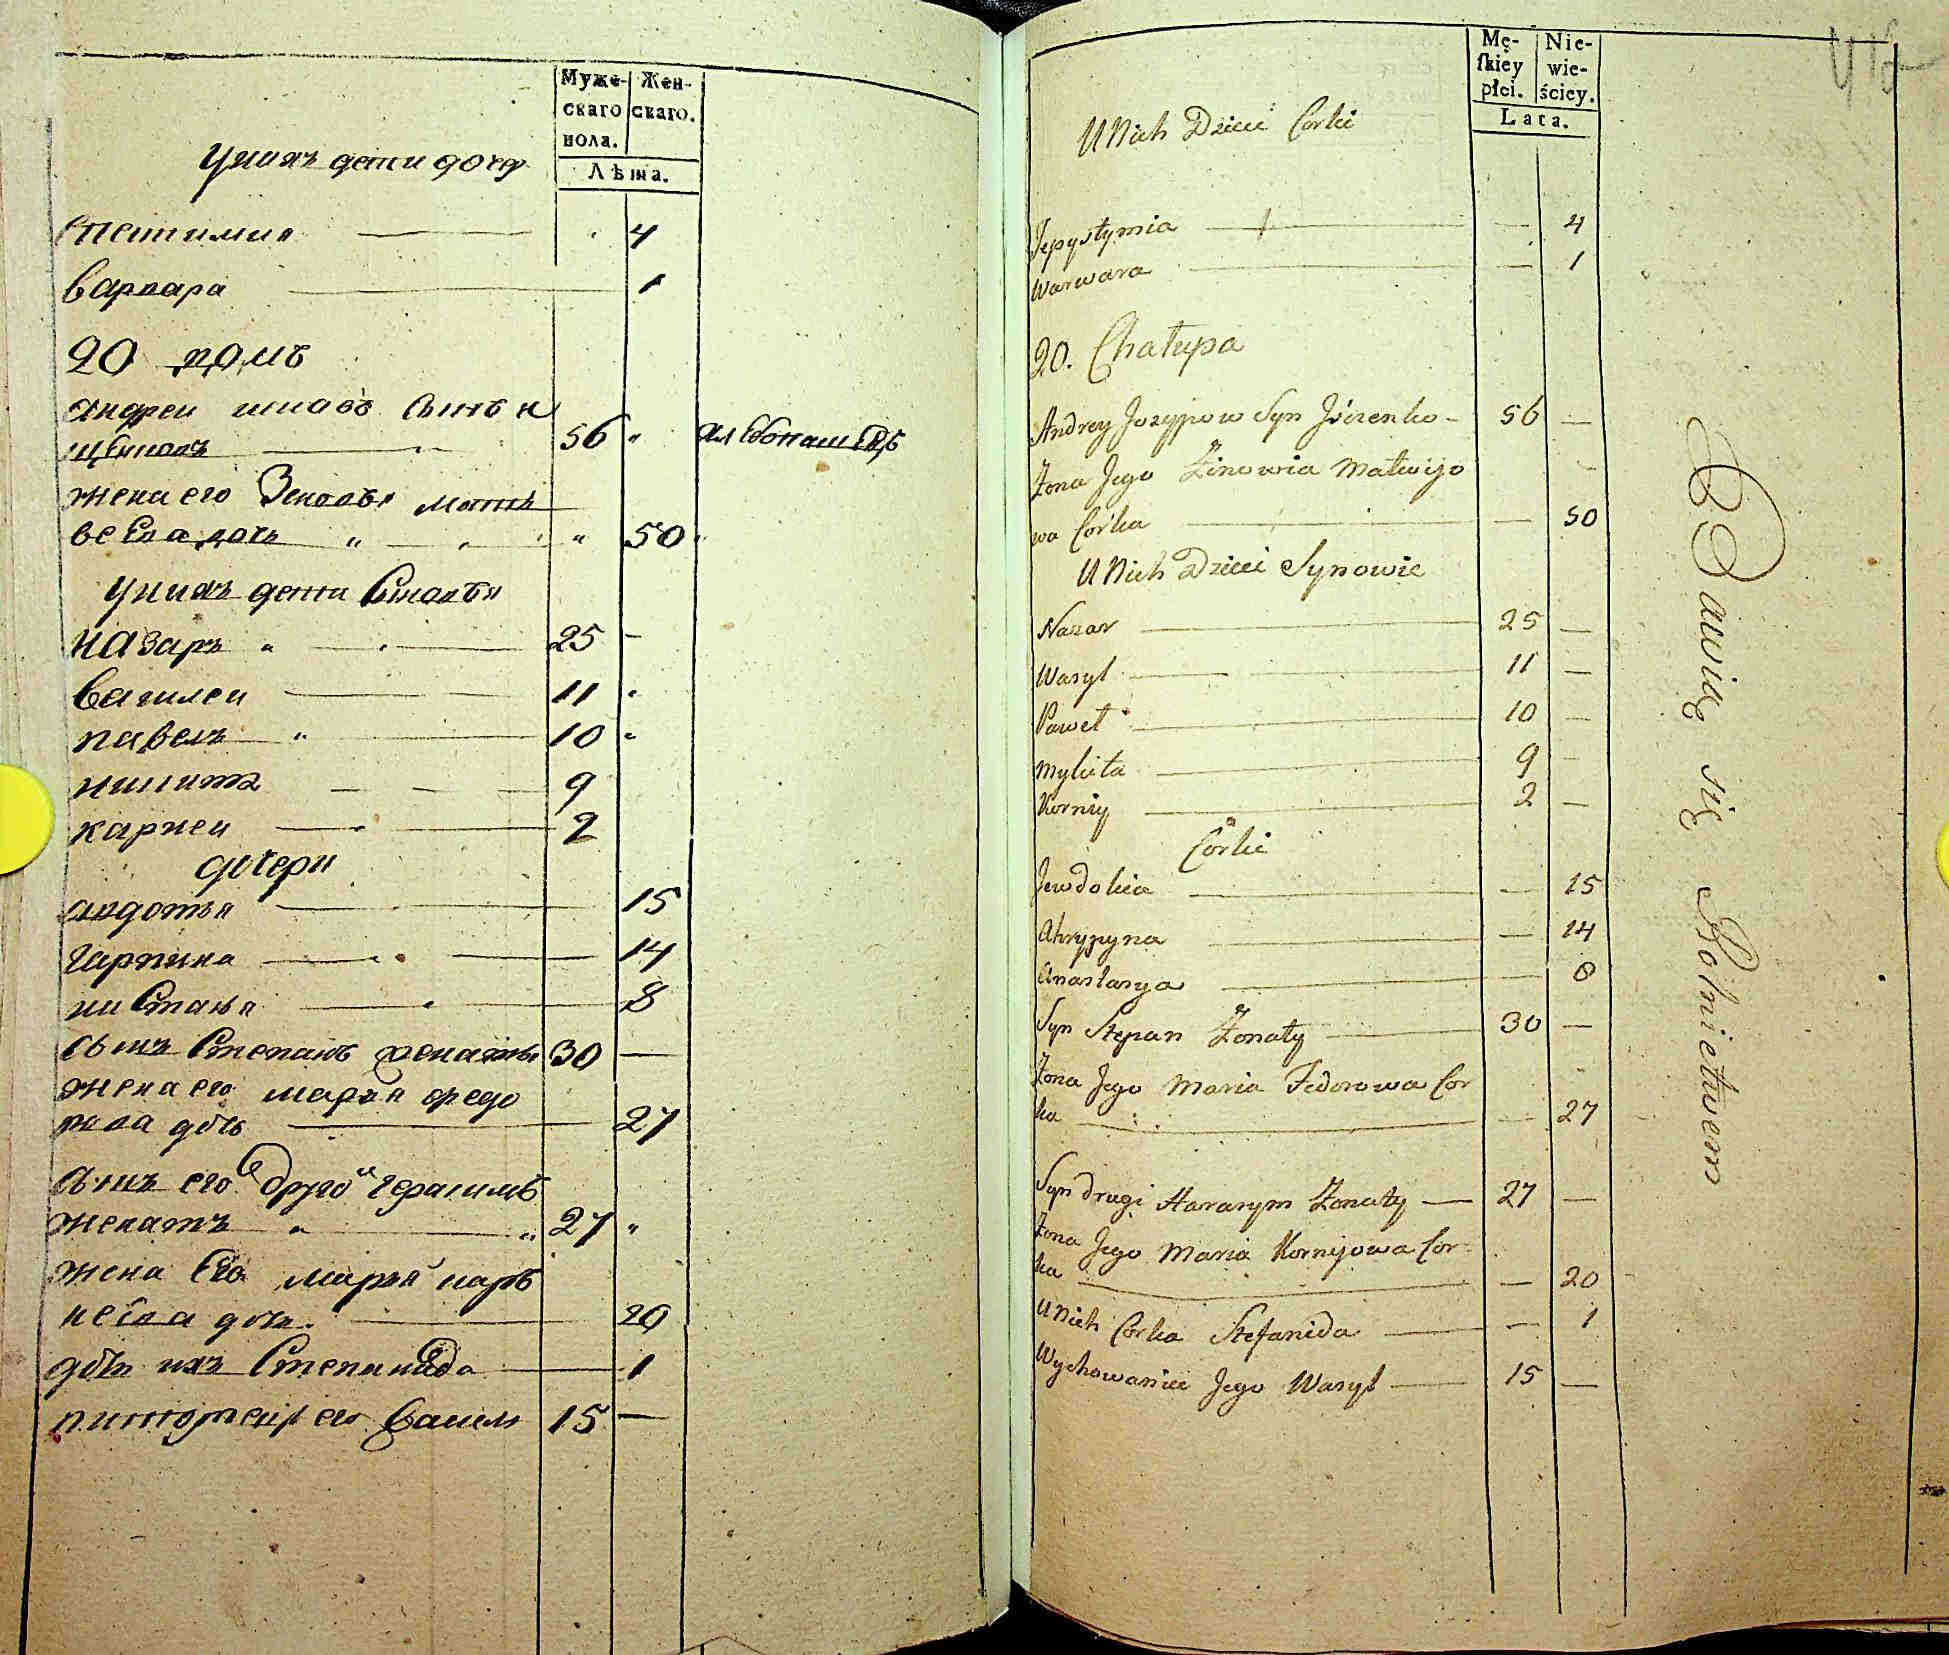 Муже-
скаго
пола.
Жен-
скаго.
Лѣта.
унихъ дети дочер
епетимия 4
варвара 1
20 домъ
андреи сынъ
56
хлебопашецъ
жена его Зеновья матъ
веева дочь 50
унихъ дети Сыновья
назаръ 25
василеи 11
павелъ 10
никита 9
карнеи 2
дочери
авдотья 15
гарпина 14
настасья 8
сынъ Степанъ женаты 30
жена его марья федо
рова дочь 27
сынъ его другой герасимъ
женатъ 27
жена Его марья каръ
неева дочь 20
дочь ихъ Степанида 1
его Васили 15
Mę-
skiey
płci.
Nie-
wie-
ściey.
Lata.
U Nich Dzieci Corki
Jepystymia 4
Warwara 1
20. Chałupa
Andrey Jozypow Syn 56
Żona Jego Zinowia Matwijo
wa Corka 50
U Nich Dzieci Synowie
Nazar 25
Wasyl 11
Paweł 10
Mykita 9
Korniy 2
Corki
Jewdokia 15
Ahrypyna 14
Anastasya 8
Syn Stepan Żonaty 30
Żona Jego Maria Fedorowa Cor
ka 27
Syn drugi Harasym Żonaty 27
Żona Jego Maria Kornijowa Cor
ka 20
U Nich Corka Stefanida 1
Wychowaniec Jego Wasyl 15
Bawią się Rolnictwem